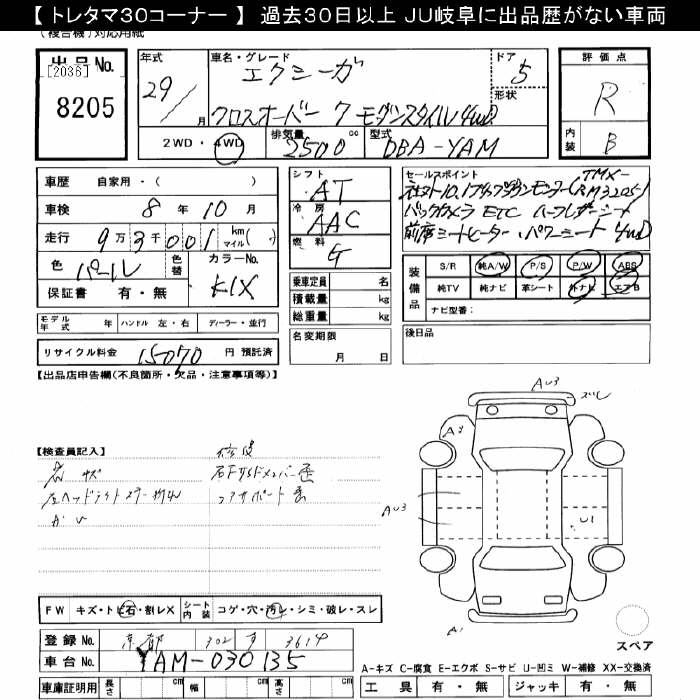 【 トレタマ30コーナー 】 過去30日以上 JU岐阜に出品歴がない車両
(複合機)対応用紙
出品No.
[2036]
8205
年式
29/
月
車名・グレード
エクシーガ
クロスオーバー7 モダンスタイル4WD
ドア
5
形状
2WD・4WD
排気量
2500
cc
型式
DBA-YAM
評価点
R
内装
B
車歴 自家用・( )
車検 8年10月
走行 9万3千001 km マイル( )
色 パール 色替
カラーNo. K1X
保証書 有・無
シフト AT
冷房 AAC
燃料 G
乗車定員 名
積載量 kg
総重量 kg
名変期限
月 日
セールスポイント
バックカメラ ETC ハーフレザーシート
前席シートヒーター・パワーシート 4WD
装備品
S/R 純A/W P/S P/W ABS
純TV 純ナビ 革シート 外ナビ エアB
ナビ型番:
モデル年式 年 ハンドル 左・右 ディーラー・並行
リサイクル料金 15070 円 預託済
後日品
【出品店申告欄(不良箇所・欠品・注意事項等)】
【検査員記入】
修復
AU3
ズレ
A2
AU3
U1
A1
FW キズ・トビ石・割レX
シート内装 コゲ・穴・汚レ・シミ・破レ・スレ
登録No. 京都 302 す 3614
車台No. YAM-030135
車庫証明用 長さ cm 幅 cm 高さ cm
スペア
A-キズ C-腐食 E-エクボ S-サビ U-凹ミ W-補修 XX-交換済
工具 有・無 ジャッキ 有・無